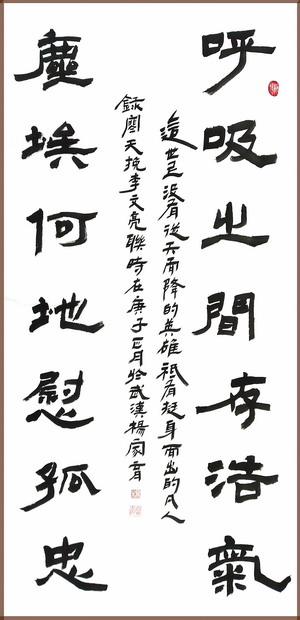 呼吸之間存浩氣
這世上没有從天而降的英雄祇有挺身而出的凡人
錄天挽李文亮聯時在庚子月於武漢楊家
塵埃何地慰孤忠